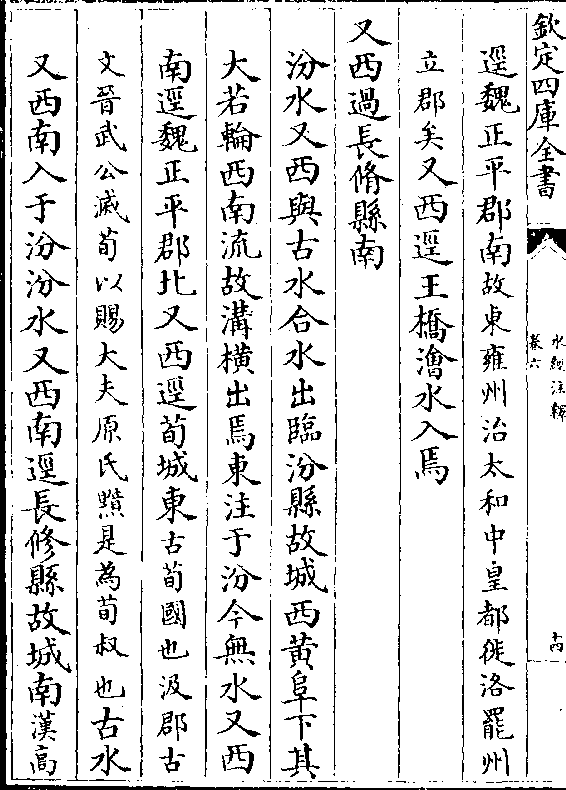 欽定四庫全書
水經注釋
卷六
十四
逕魏正平郡南故東雍州治太和中皇都徙洛罷州
立郡矣又西逕王橋澮水入焉
又西過長脩縣南
汾水又西與古水合水出臨汾縣故城西黃阜下其
大若輪西南流故溝橫出焉東注于汾今無水又西
南逕魏正平郡北又西逕荀城東古荀國也汲郡古
文晉武公滅荀以賜大夫原氏黯是為荀叔也古水
又西南入于汾汾水又西南逕長修縣故城南漢高